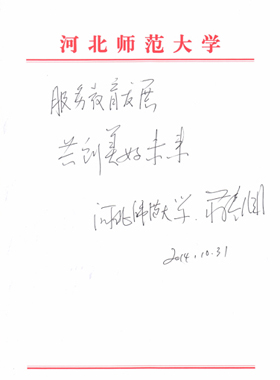 河北师范大学
服务教育发展
共创美好未来
河北师范大学
2014.10.31